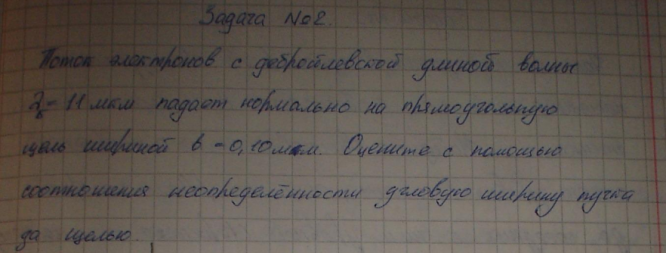 Задача №2.
Поток электронов с дебройлевской длиной волны
λБ = 11 мкм падает нормально на прямоугольную
щель шириной b = 0,10 мкм. Оцените с помощью
соотношения неопределённости угловую ширину пучка
за щелью.